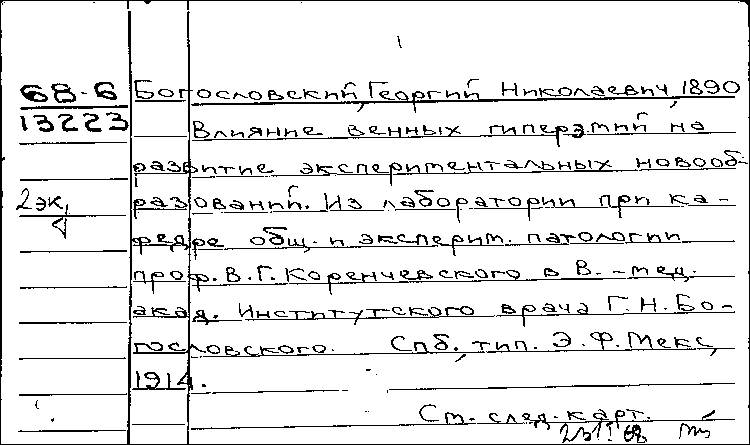 68-6 Богословский, Георгий Николаевич, 1890
13223 Влияние венных гиперэмий на
развитие экспериментальных новооб-
2 эк. разований. Из лаборатории при ка-
федре общ. и эксперим. патологии
проф. В. Г. Коренчевского в В.-мед.
акад. Институтского врача Г. Н. Бо-
гословского. Спб., тип. Э. Ф. Мекс,
1914.
См. след. карт.